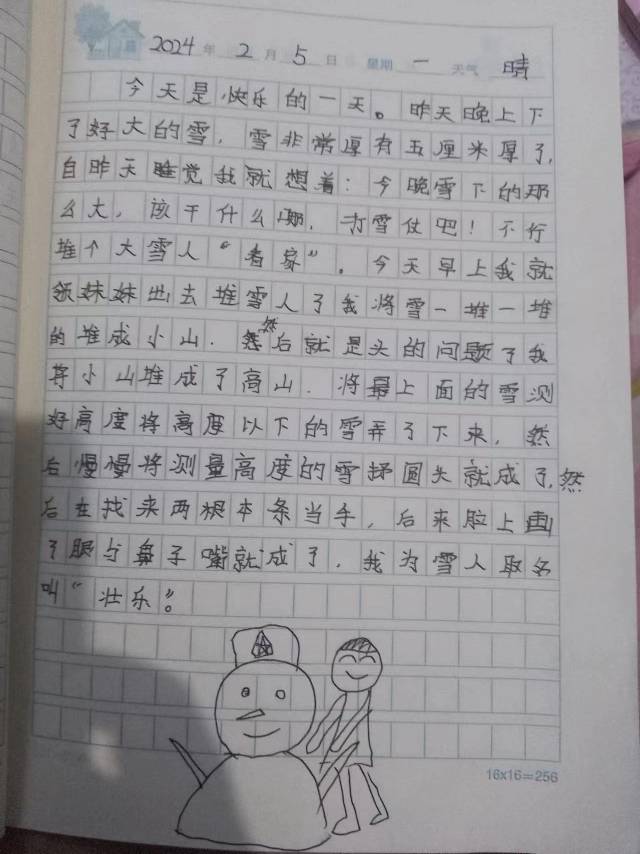 2024年 2月 5日 星期 一 天气 晴
今天是快乐的一天。昨天晚上下
了好大的雪，雪非常厚有五厘米厚了，
自昨天睡觉我就想着：今晚雪下的那
么大，该干什么呢，打雪仗吧！不行
堆个大雪人“看家”。今天早上我就
领妹妹出去堆雪人了我将雪一堆一堆
的堆成小山．然后就是头的问题了我
将小山堆成了高山．将最上面的雪测
好高度将高度以下的雪弄了下来，然
后慢慢将测量高度的雪抒圆头就成了，然
后在找来两根本条当手，后来脸上画
了眼与鼻子嘴就成了，我为雪人取名
叫“壮乐”。
16×16=256